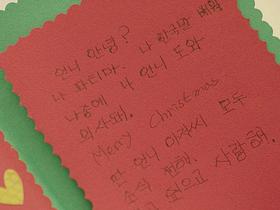 언니 안녕?
나 파티마. 나 한국말 배워
나중에 나 언니 도와
의사돼.
Merry Christmas
또 언니 아저씨 모두
소식 전해.
고 싶으고 사랑해.